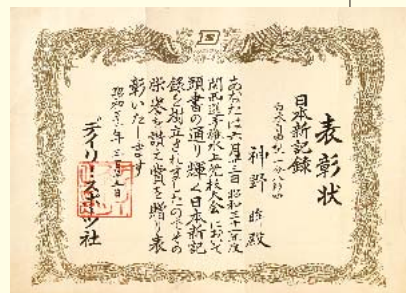 表彰状
日本新記録
神野 殿
あなたは六月廿三日昭和三十一年度
関西選手権水上競技大会において
頭書の通り輝く日本新記
録を樹立されましたのでその
栄誉を讃え賞を贈り表
彰いたします
昭和 年 月 日
デイリースポーツ社